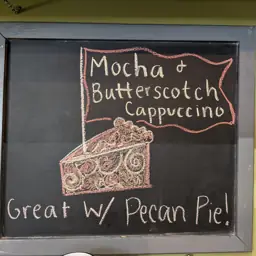 Mocha +
Butterscotch
Cappuccino
Great W/ Pecan Pie!